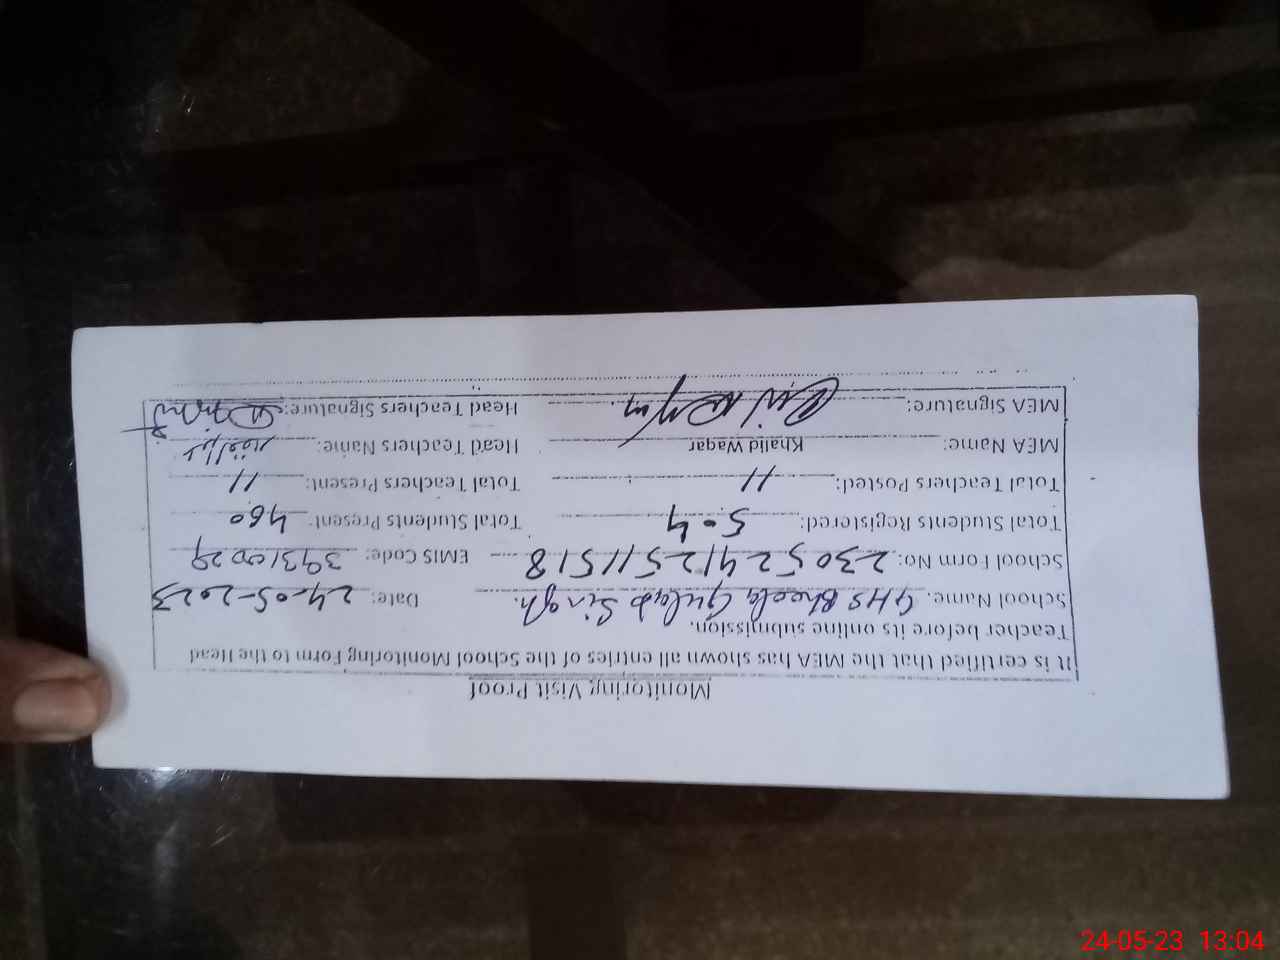 Monitoring Visit Proof
It is certified that the MEA has shown all entries of the School Monitoring Form to the Head
Teacher before its online submission.
School Name: GHS Bhoola Gulab Singh. Date: 24-05-2023
School Form No: 23052412511518 EMIS Code: 39310029
Total Students Registered: 504 Total Students Present: 460
Total Teachers Posted: 11 Total Teachers Present: 11
MEA Name: Khalid Waqar Head Teachers Name:
MEA Signature: Head Teachers Signature:
24-05-23 13:04